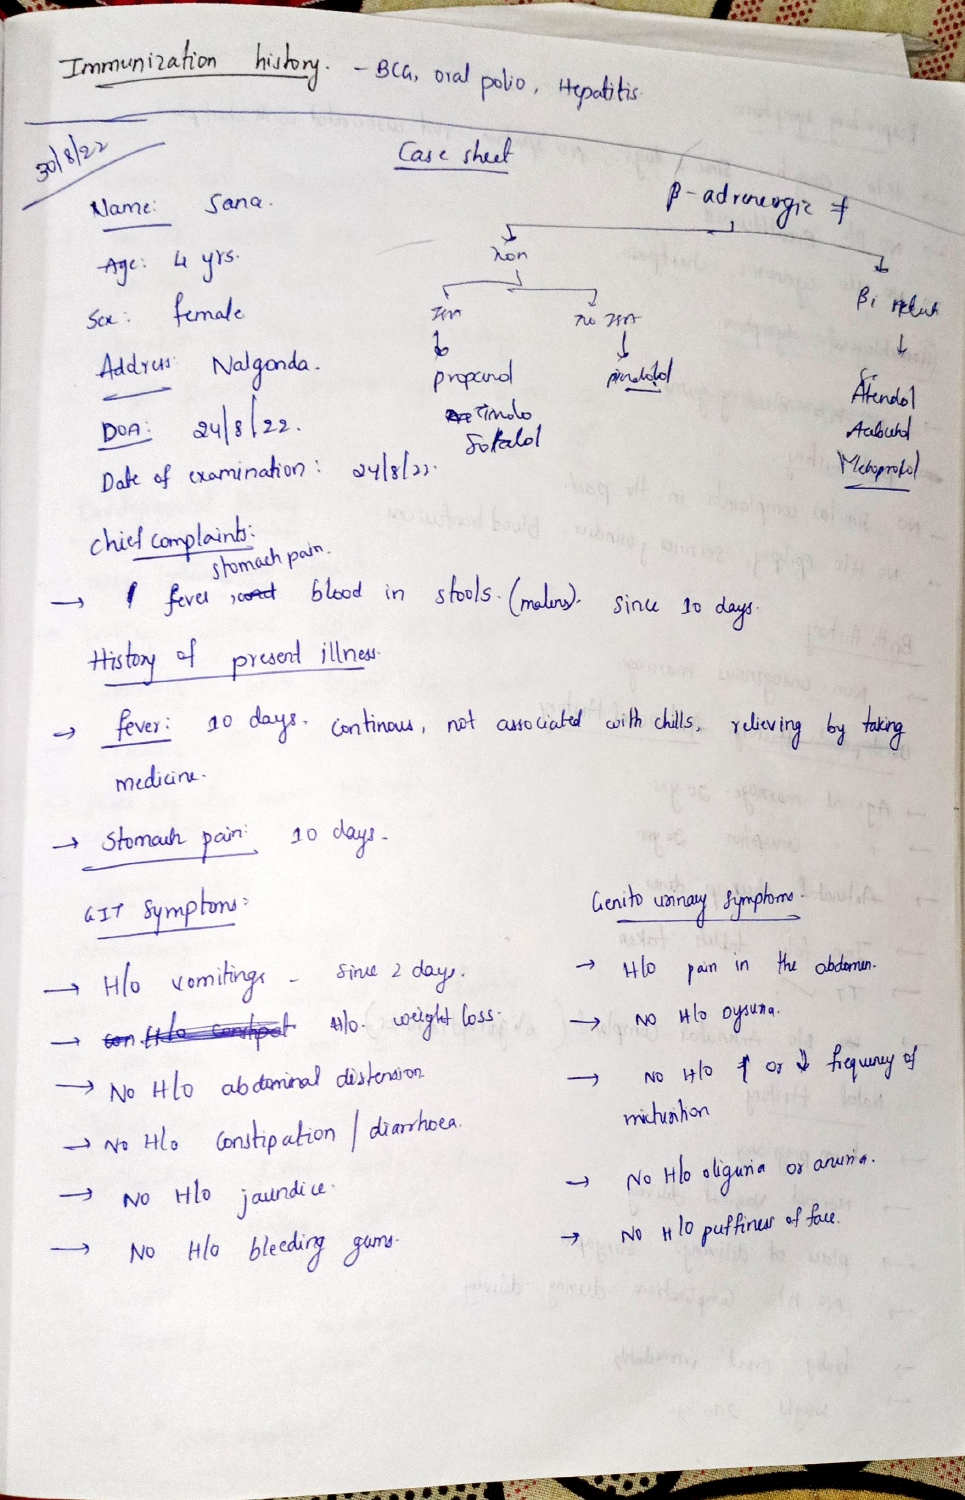 Immunization history. - BCG, oral polio, Hepatitis
30/8/22
Case sheet
Name: Sana.
Age: 4 yrs.
Sex: female
Address: Nalgonda.
DOA: 24/8/22.
Date of examination: 24/8/22.
β-adrenergic
Non
β1
no ISA
pindolol
Timolo
Sotalol
Atendol
Metoprolol
Chief complaints:
stomach pain.
→ fever, blood in stools. (malena). Since 10 days.
History of present illness.
→ fever: 10 days. Continous, not associated with chills, relieving by taking
medicine.
→ Stomach pain: 10 days.
GIT Symptoms:
→ H/o vomitings - Since 2 days.
→ H/o. weight loss.
→ No H/o abdominal distension
→ No H/o Constipation / diarrhoea.
→ No H/o jaundice.
→ No H/o bleeding gums.
Genito urinary symptoms.
→ H/o pain in the abdomen.
→ No H/o dysuria.
→ No H/o ↑ or ↓ frequency of
micturition
→ No H/o oliguria or anuria.
→ No H/o puffiness of face.